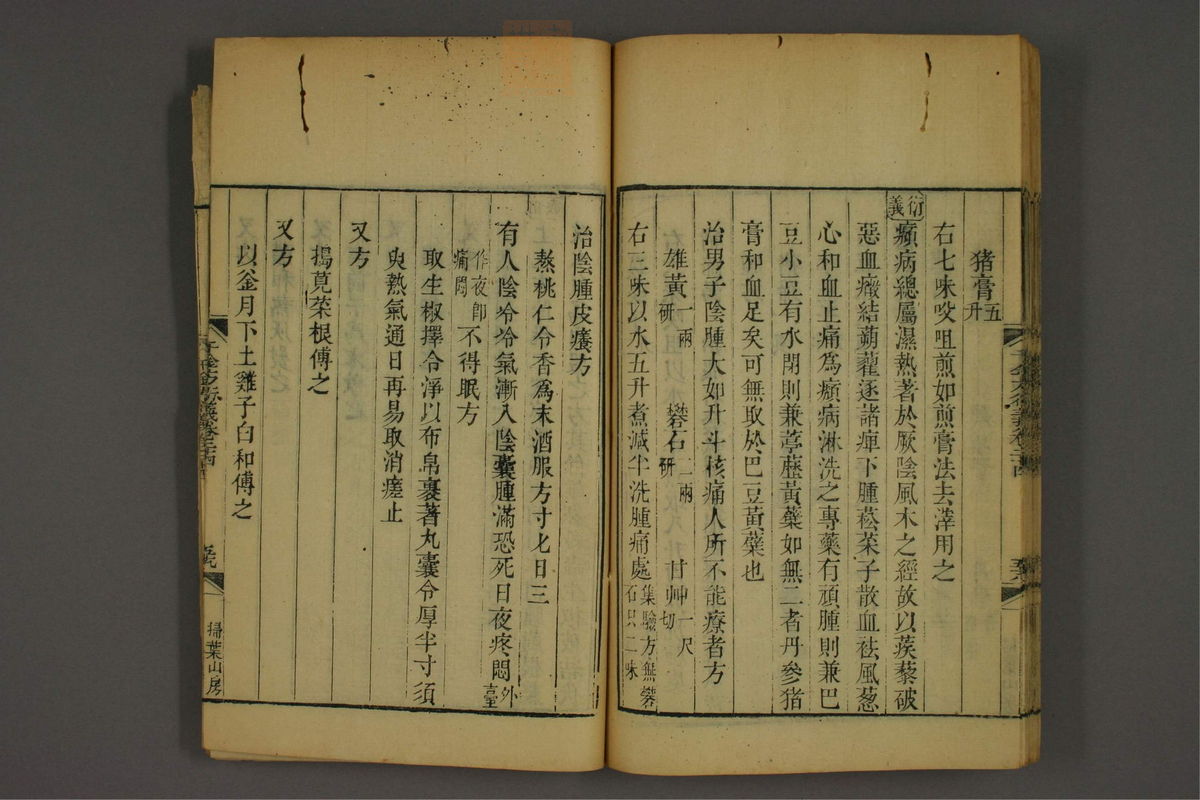 猪膏五升
右七味㕮咀煎如煎膏法去滓用之
衍義
㿗病總屬濕熱著於厥陰風木之經故以蒺藜破
惡血癥結蒴藋逐諸痺下腫菘菜子散血祛風葱
心和血止痛為㿗病淋洗之專藥有頑腫則兼巴
豆小豆有水閉則兼葶藶黃蘗如無二者丹參猪
膏和血足矣可無取於巴豆黃蘗也
治男子陰腫大如升斗核痛人所不能療者方
雄黃一兩研 礬石二兩研 甘艸一尺切
右三味以水五升煮減半洗腫痛處集驗方無礬石只二味
治陰腫皮癢方
熬桃仁令香為末酒服方寸匕日三
有人陰冷冷氣漸入陰囊腫滿恐死日夜疼悶外臺
作夜卽痛悶不得眠方
取生椒擇令淨以布帛裹著丸囊令厚半寸須
臾熱氣通日再易取消瘥止
又方
搗莧菜根傅之
又方
以釜月下土雞子白和傅之
千金方衍義卷二十四
掃葉山房